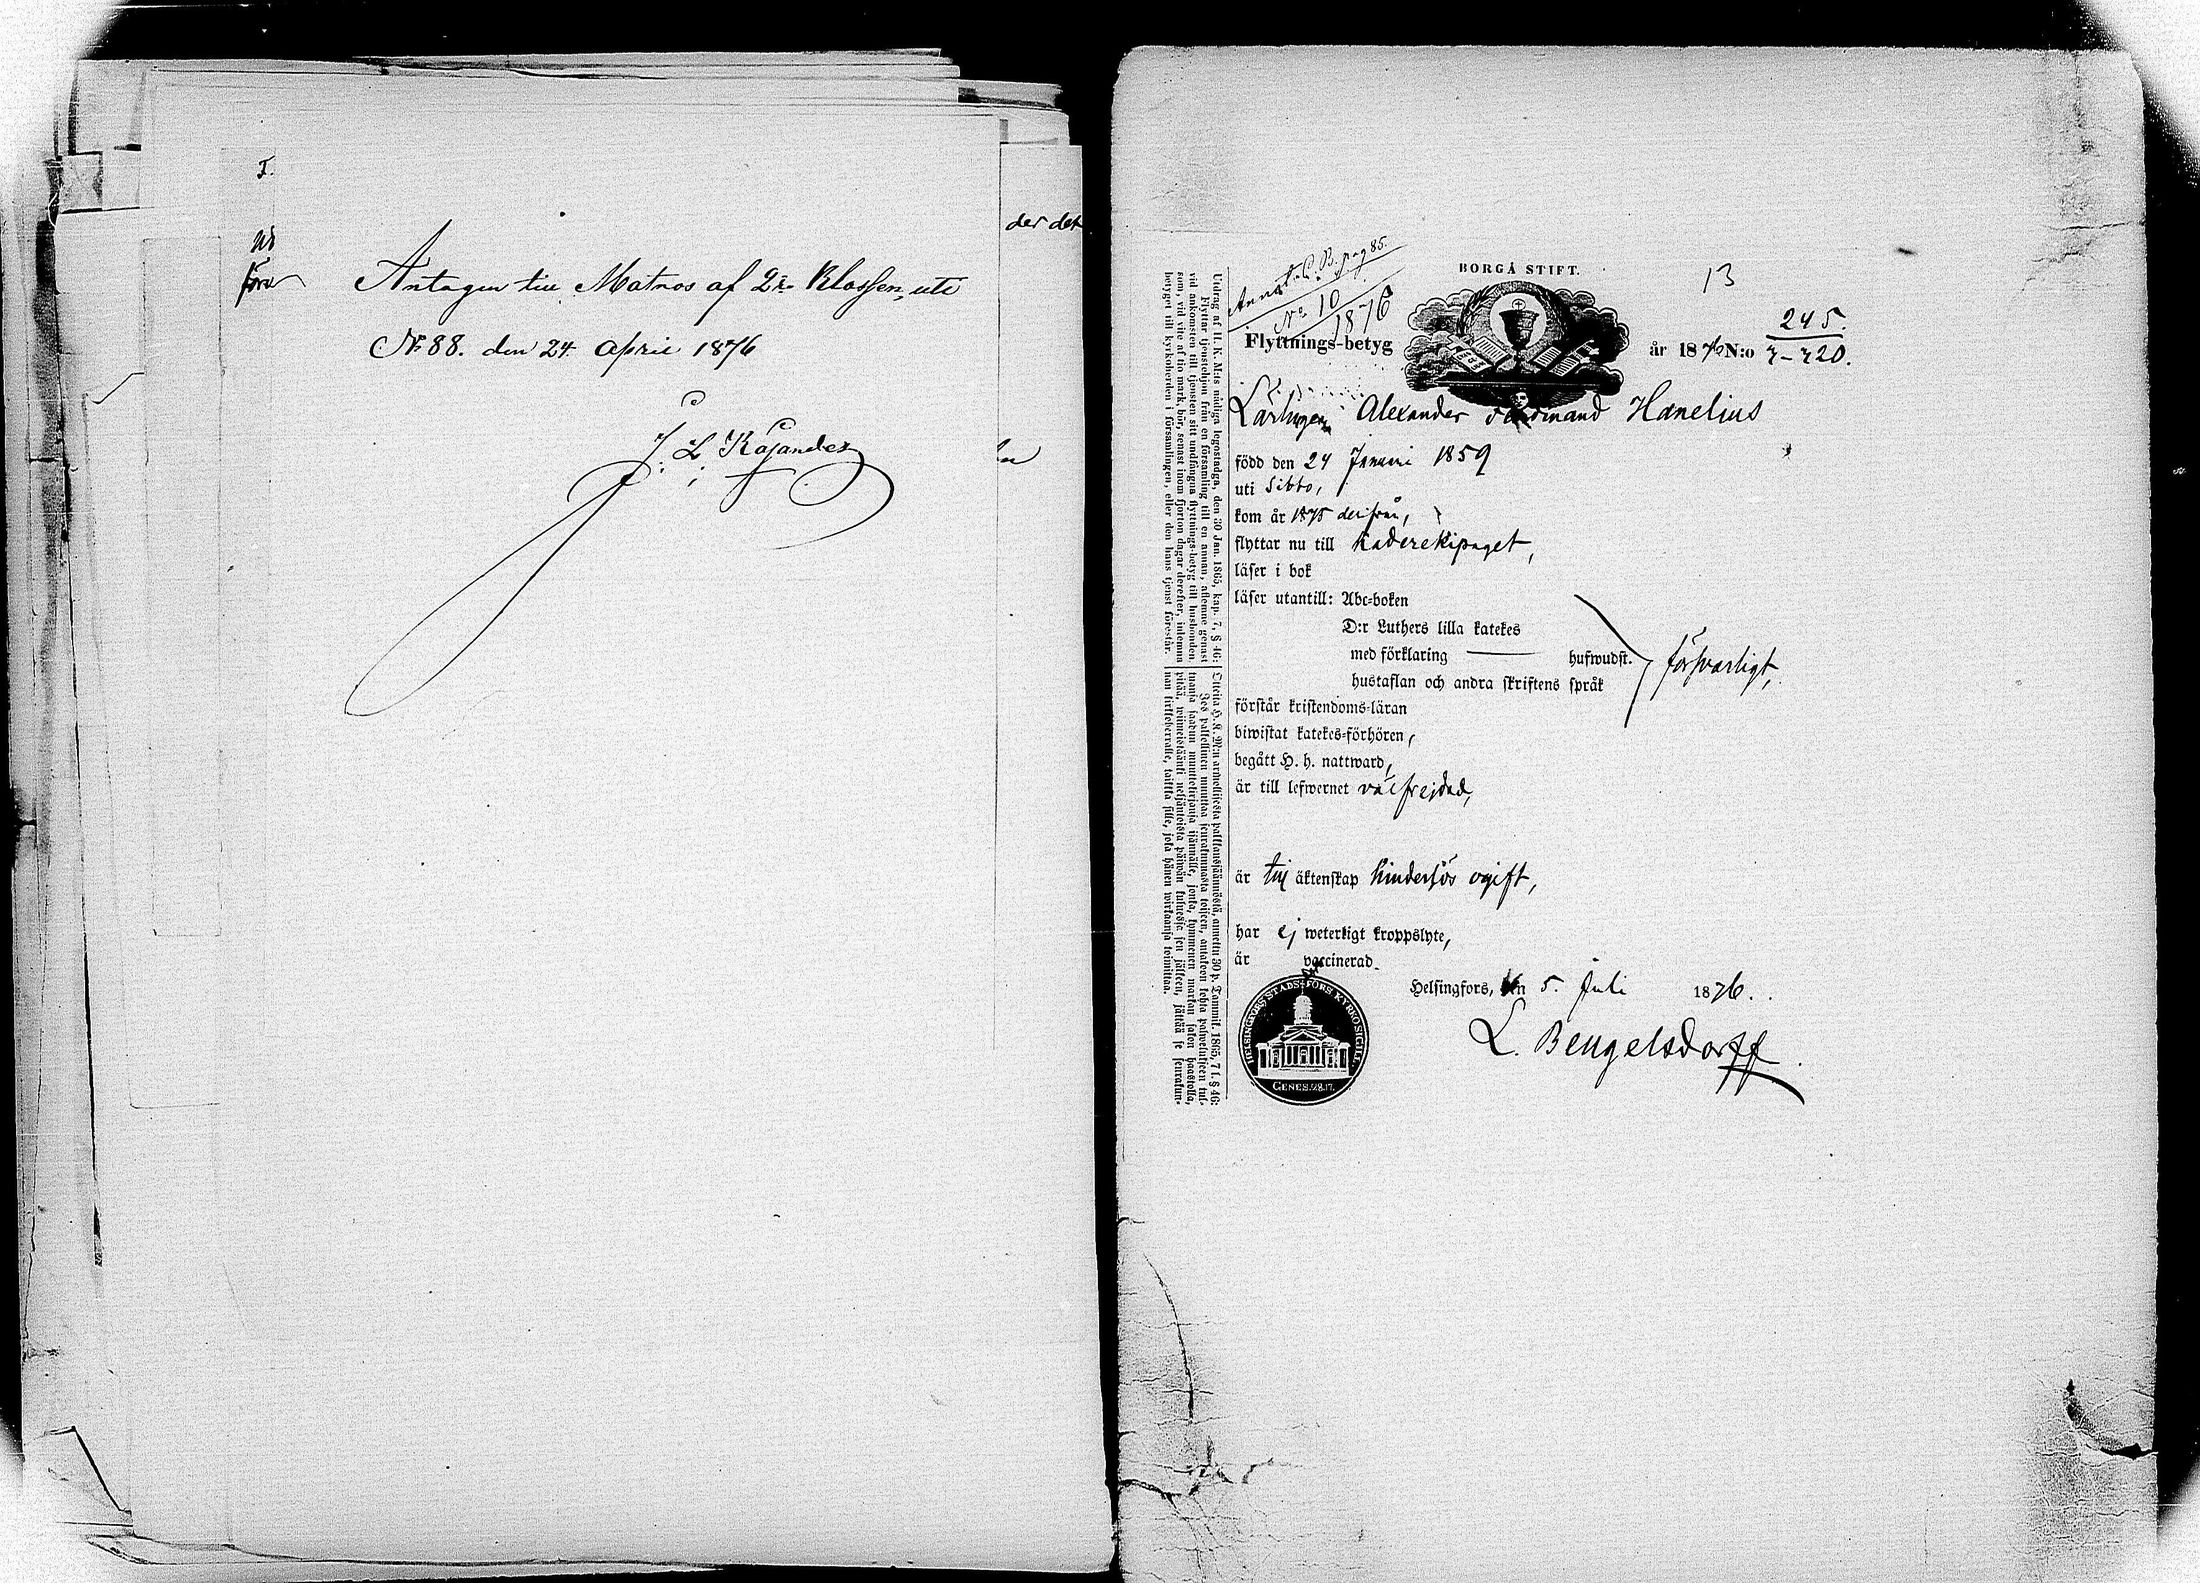 T.
der det
Antagen till Matros af 2ra Klassen, uti
№ 88. den 24 April 1876
J. L. Kajander
Annot. C. B. pag 85.
No 10
1876
BORGÅ STIFT.
13
Flyttnings-betyg
år 1876 N:o 245.
7-720.
Lärlingen Alexander Ferdinand Hanelius
född den 24 Januari 1859
uti Sibbo,
kom år 1875 derifrån,
flyttar nu till Kaderekipaget,
läser i bok
läser utantill: Abc-boken
D:r Luthers lilla katekes
med förklaring hufwudst.
hustaflan och andra skriftens språk
försvarligt,
förstår kristendoms-läran
biwistat katekes-förhören,
begått H. h. nattward,
är till lefwernet välfrejdad,
är till äktenskap hinderslös ogift,
har ej weterligt kroppslyte,
är vaccinerad.
Helsingfors, den 5. Juli 1876.
L. Bengelsdorff
HELSINGFORS STADS KYRKO SIGILL
GENES. 28.17.
Utdrag af H. K. M:ts nådiga legostadga, den 30 Jan. 1865, kap. 7, § 46:
Flyttar tjenstehjon från en församling till en annan, aflemne genast
vid ankomsten till tjensten sitt undfångna flyttnings-betyg till husbonden
som, vid vite af tio mark, bör, senast inom fjorton dagar derefter, inlemna
betyget till kyrkoherden i församlingen, eller den hans tjenst förestår.
Otteita H. K. M:n armollisesta palkkaussäännöstä, annettu 30 p. Tammik. 1865, 7 l. § 46:
Jos palkollinen muuttaa seurakunnasta toiseen, antakoon kohta palwelukseen tul-